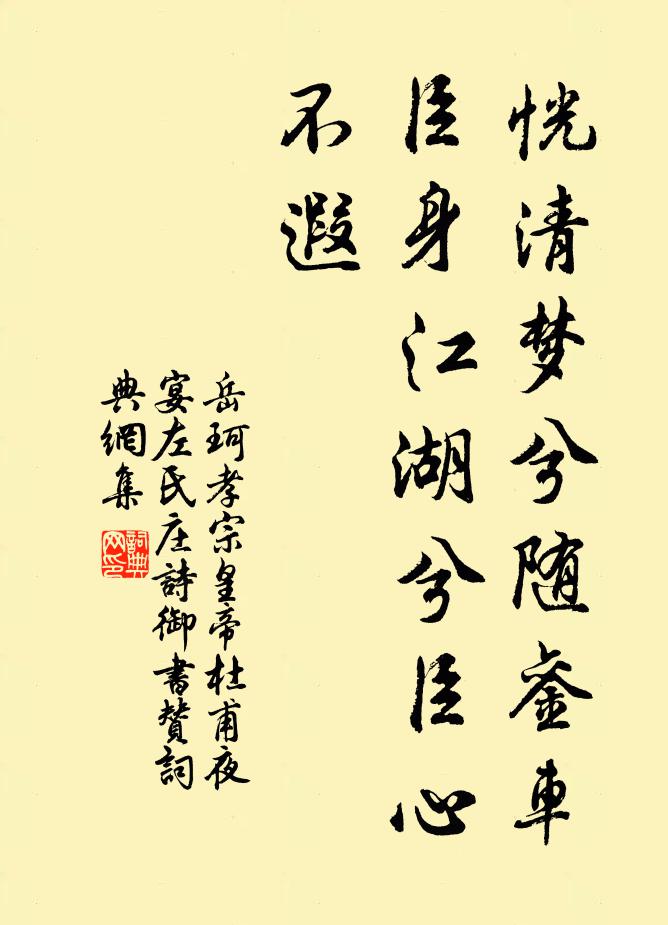 恍清梦兮随銮車
臣身江湖兮臣心
不遐
岳珂孝宗皇帝杜甫夜
宴左氏庄詩御書赞詞
典網集
詞典
网印